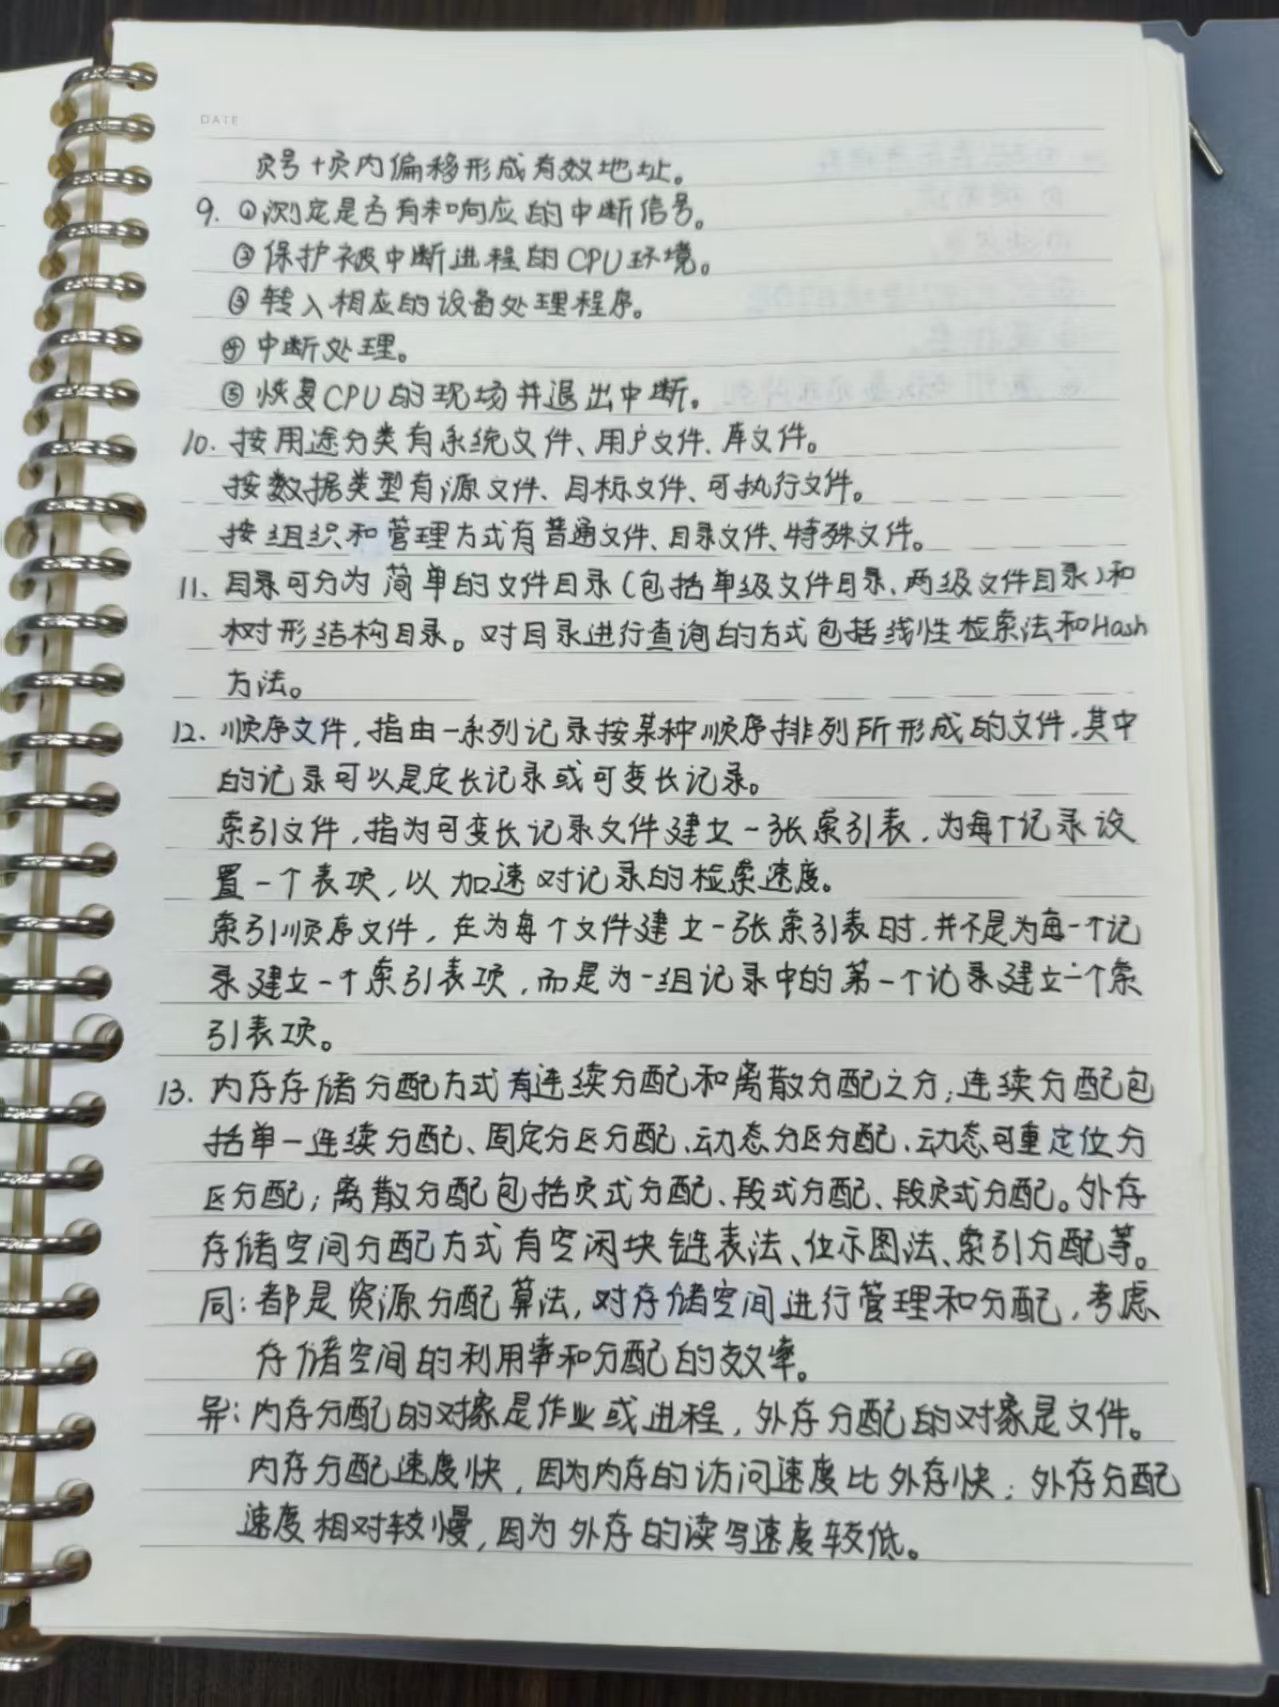 DATE
页号+页内偏移形成有效地址。
9. ①测定是否有未响应的中断信号。
②保护被中断进程的CPU环境。
③转入相应的设备处理程序。
④中断处理。
⑤恢复CPU的现场并退出中断。
10. 按用途分类有系统文件、用户文件、库文件。
按数据类型有源文件、目标文件、可执行文件。
按组织和管理方式有普通文件、目录文件、特殊文件。
11. 目录可分为简单的文件目录(包括单级文件目录、两级文件目录)和
树形结构目录。对目录进行查询的方式包括线性检索法和Hash
方法。
12. 顺序文件,指由一系列记录按某种顺序排列所形成的文件,其中
的记录可以是定长记录或可变长记录。
索引文件,指为可变长记录文件建立一张索引表,为每个记录设
置一个表项,以加速对记录的检索速度。
索引顺序文件,在为每个文件建立一张索引表时,并不是为每一个记
录建立一个索引表项,而是为一组记录中的第一个记录建立一个索
引表项。
13. 内存存储分配方式有连续分配和离散分配之分;连续分配包
括单一连续分配、固定分区分配、动态分区分配、动态可重定位分
区分配;离散分配包括页式分配、段式分配、段页式分配。外存
存储空间分配方式有空闲块链表法、位示图法、索引分配等。
同:都是资源分配算法,对存储空间进行管理和分配,考虑
存储空间的利用率和分配的效率。
异:内存分配的对象是作业或进程,外存分配的对象是文件。
内存分配速度快,因为内存的访问速度比外存快;外存分配
速度相对较慢,因为外存的读写速度较低。